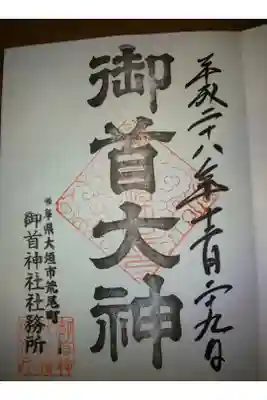 平成二十八年 月 九日
御首大神
岐阜県大垣市荒尾町
御首神社社務所